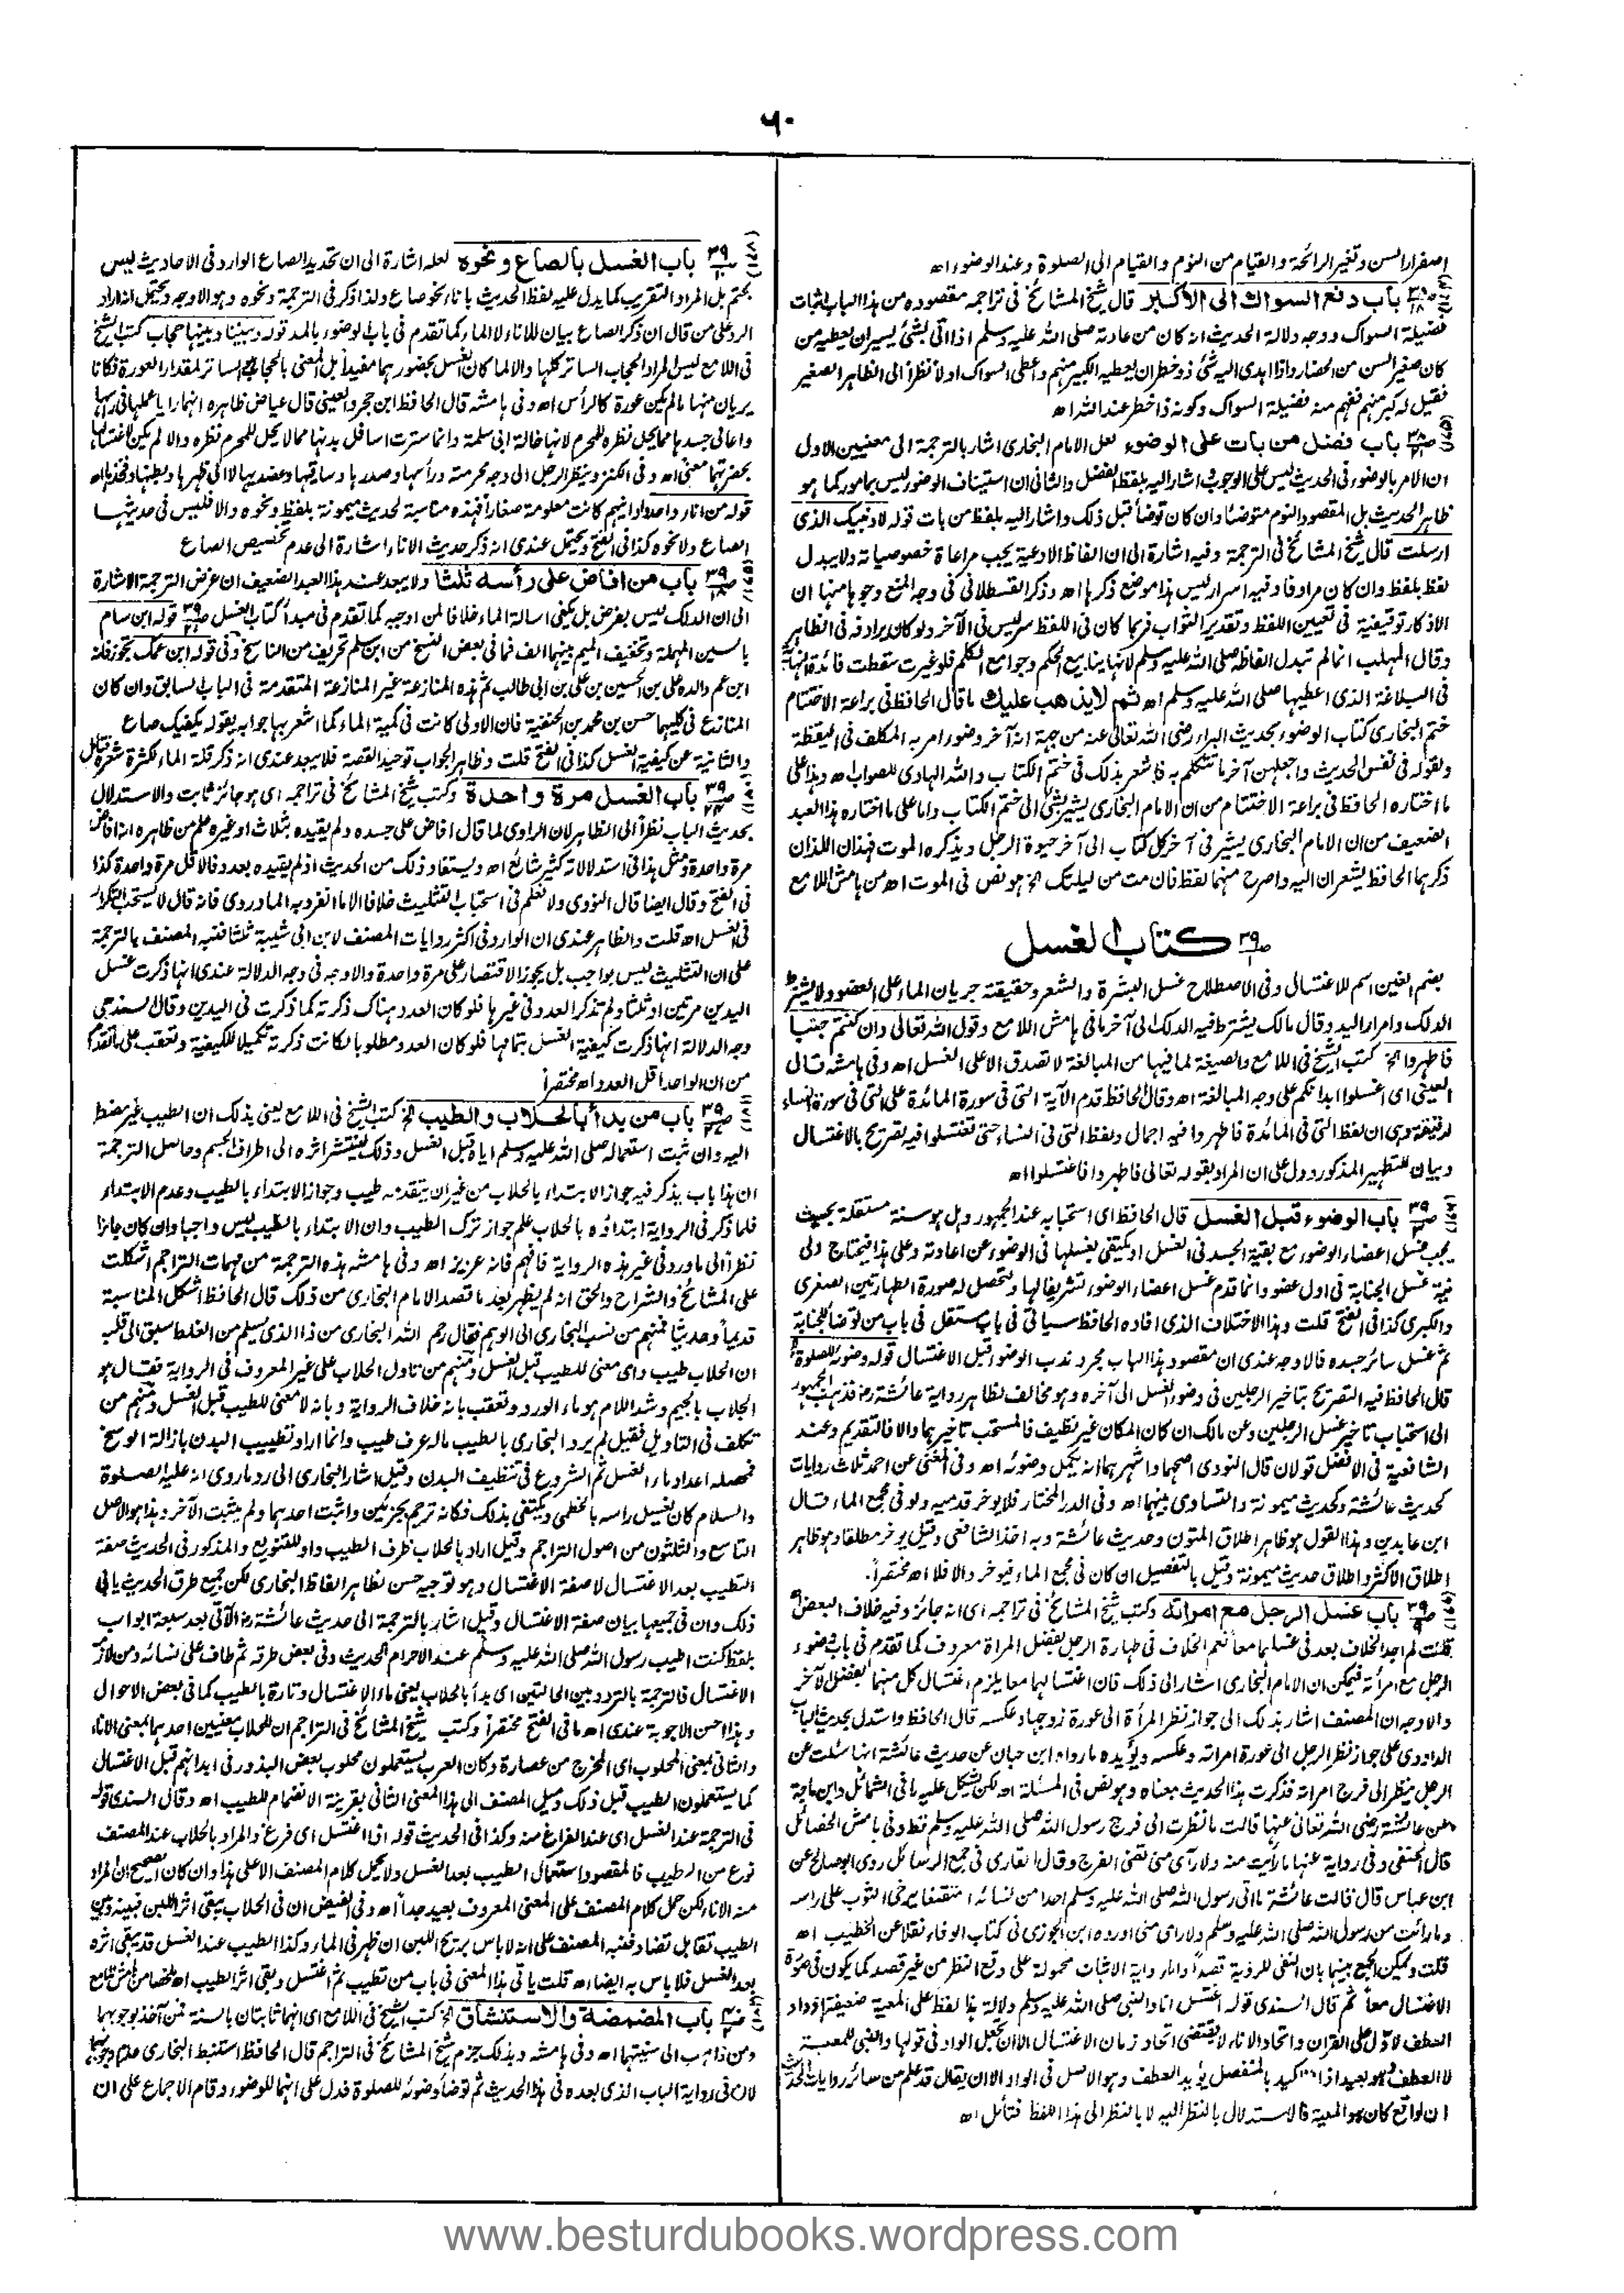 ٦٠
اصفرار السن وتغير الرائحة والقيام من النوم والقيام الى الصلوة وعند الوضوء اه
باب دفع السواك الى الاكبر قال شيخ المشائخ فى تراجمه مقصوده من هذا الباب اثبات
فضيلة السواك ووجه دلالة الحديث انه كان من عادته صلى الله عليه وسلم اذا اتى بشئ يسير ان يعطيه من
كان صغير السن من الحضار واذا اهدى اليه شئ ذو خطر ان يعطيه الكبير منهم واعطى السواك اولا نظراً الى الظاهر الصغير
فقيل له كبر منهم ففهم منه فضيلة السواك وكونه ذا خطر عند الله اه
باب فضل من بات على الوضوء لعل الامام البخارى اشار بالترجمة الى معنيين الاول
ان الامر بالوضوء فى الحديث ليس على الوجوب اشار اليه بلفظ الفضل والثانى ان استيناف الوضوء ليس بمامور كما هو
ظاهر الحديث بل المقصود النوم متوضئا وان كان توضأ قبل ذلك واشار اليه بلفظ من بات قوله لا ونبيك الذى
ارسلت قال شيخ المشائخ فى الترجمة وفيه اشارة الى ان الفاظ الادعية يجب مراعاة خصوصياته ولا يبدل
لفظ بلفظ وان كان مرادفا وفيه اسرار ليس هذا موضع ذكرها اه وذكر القسطلانى فى وجه المنع وجوها منها ان
الاذكار توقيفية فى تعيين اللفظ وتقدير الثواب فربما كان فى اللفظ سر ليس فى الآخر ولو كان يرادفه فى الظاهر
وقال المهلب انما لم تبدل الفاظه صلى الله عليه وسلم لانها ينابيع الحكم وجوامع الكلم فلو غيرت سقطت فائدة النهاية
فى البلاغة الذى اعطيها صلى الله عليه وسلم اه ثم لا يذهب عليك ما قال الحافظ فى براعة الاختتام
ختم البخارى كتاب الوضوء بحديث البراء رضى الله تعالى عنه من جهة انه آخر وضوء امر به المكلف فى اليقظة
ولقوله فى نفس الحديث واجعلهن آخر ما تتكلم به فاشعر بذلك فى ختم الكتاب والله الهادى للصواب اه وهذا على
ما اختاره الحافظ فى براعة الاختتام من ان الامام البخارى يشير بشئ الى ختم الكتاب واما على ما اختاره هذا العبد
الضعيف من ان الامام البخارى يشير فى آخر كل كتاب الى آخر حيوة الرجل ويذكره الموت فهذان اللذان
ذكرهما الحافظ يشعران اليه واصرح منهما لفظ فان مت من ليلتك الخ هو نص فى الموت اه من هامش اللامع
كتاب الغسل
بضم الغين اسم للاغتسال وفى الاصطلاح غسل البشرة والشعر وحقيقته جريان الماء على العضو ولا يشترط
الدلك وامرار اليد وقال مالك يشترط فيه الدلك الى آخر ما فى هامش اللامع وقول الله تعالى وان كنتم جنبا
فاطهروا الخ كتب الشيخ فى اللامع والصيغة لما فيها من المبالغة لا تصدق الا على الغسل اه وفى هامشه قال
العينى اى اغسلوا ابدانكم على وجه المبالغة اه وقال الحافظ قدم الآية التى فى سورة المائدة على التى فى سورة النساء
لدقيقة وهى ان لفظ التى فى المائدة فاطهروا فيه اجمال ولفظ التى فى النساء حتى تغتسلوا فيه تصريح بالاغتسال
وبيان للتطهير المذكور ودل على ان المراد بقوله تعالى فاطهروا فاغتسلوا اه
باب الوضوء قبل الغسل قال الحافظ اى استحبابه عند الجمهور وهل هو سنة مستقلة بحيث
يجب غسل اعضاء الوضوء مع بقية الجسد فى الغسل او يكتفى بغسلها فى الوضوء عن اعادته وعلى هذا فيحتاج الى
نية غسل الجنابة فى اول عضو وانما قدم غسل اعضاء الوضوء تشريفا لها ولتحصل له صورة الطهارتين الصغرى
والكبرى كذا فى الفتح قلت وهذا الاختلاف الذى افاده الحافظ سياتى فى باب مستقل فى باب من توضأ للجنابة
ثم غسل سائر جسده فالاوجه عندى ان مقصود هذا الباب مجرد ندب الوضوء قبل الاغتسال قوله وضوءه للصلوة
قال الحافظ فيه التصريح بتاخير الرجلين فى وضوء الغسل الى آخره وهو مخالف لظاهر رواية عائشة رض فذهب الجمهور
الى استحباب تاخير غسل الرجلين وعن مالك ان كان المكان غير نظيف فالمستحب تاخيرهما والا فالتقديم وعند
الشافعية فى الافضل قولان قال النووى اصحهما واشهرهما انه يكمل وضوئه اه وفى المغنى عن احمد ثلاث روايات
كحديث عائشة وكحديث ميمونة والتساوى بينهما اه وفى الدر المختار فلا يوخر قدميه ولو فى مجمع الماء قال
ابن عابدين وهذا القول هو ظاهر اطلاق المتون وحديث عائشة وبه اخذ الشافعى وقيل يوخر مطلقا وهو ظاهر
اطلاق الاكثر واطلاق حديث ميمونة وقيل بالتفصيل ان كان فى مجمع الماء فيوخر والا فلا اه مختصراً.
باب غسل الرجل مع امرأته وكتب شيخ المشائخ فى تراجمه اى انه جائز وفيه خلاف البعض
قلت لم اجد الخلاف بعد فى غسلهما معاً نعم الخلاف فى طهارة الرجل بفضل المرأة معروف كما تقدم فى باب وضوء
الرجل مع امرأته فيمكن ان الامام البخارى اشار الى ذلك فان اغتسالهما معا يلزم اغتسال كل منهما بفضل الآخر
والاوجه ان المصنف اشار بذلك الى جواز نظر المرأة الى عورة زوجها وعكسه قال الحافظ واستدل بحديث الباب
الداودى على جواز نظر الرجل الى عورة امراته وعكسه ويؤيده ما رواه ابن حبان عن حديث عائشة انها سئلت عن
الرجل ينظر الى فرج امراته فذكرت هذا الحديث بمعناه وهو نص فى المسئلة اه لكن يشكل عليه ما فى الشمائل وابن ماجة
عن عائشة رضى الله تعالى عنها قالت ما نظرت الى فرج رسول الله صلى الله عليه وسلم قط وفى هامش الخصائل
قال الحنفى وفى رواية عنها ما رأيت منه ولا رآى منى تعنى الفرج وقال القارى فى جمع الرسائل روى ابو صالح عن
ابن عباس قال قالت عائشة ما اتى رسول الله صلى الله عليه وسلم احدا من نسائه الا متقنعا يرخى الثوب على راسه
وما رايت من رسول الله صلى الله عليه وسلم ولا راى منى اورده ابن الجوزى فى كتاب الوفاء نقلا عن الخطيب اه
قلت ويمكن الجمع بينهما بان النفى للرؤية قصداً واما رواية الاثبات محمولة على وقع النظر من غير قصد كما يكون فى صورة
الاغتسال معاً ثم قال السندى قوله اغتسل انا والنبى صلى الله عليه وسلم دلالة هذا لفظ على المعية ضعيفة اذ واو
العطف لا تدل على القران واتحاد الاناء لا يقتضى اتحاد زمان الاغتسال الا ان يجعل الواو فى قولها والنبى للمعية
لا العطف بالمنفصل يؤيد العطف وهو الاصل فى الواو الا ان يقال قد علم من سائر روايات الحديث
ان الواقع كان هو المعية فالاستدلال بالنظر اليه لا بالنظر الى هذا اللفظ فتأمل اه
باب الغسل بالصاع ونحوه لعله اشارة الى ان تحديد الصاع الوارد فى الاحاديث ليس
بحتم بل المراد التقريب كما يدل عليه لفظ الحديث باناء نحو صاع ولذا ذكر فى الترجمة ونحوه وهو الاوجه ويحتمل انه اراد
الرد على من قال ان ذكر الصاع بيان للاناء لا الماء كما تقدم فى باب الوضوء بالمد قوله وبيننا وبينها حجاب كتب الشيخ
فى اللامع ليس المراد الحجاب الساتر كلها والا لما كان الغسل بحضورهما مفيداً بل المعنى بالحجاب الساتر لمقدار العورة فكانا
يريان منها ما لم يكن عورة كالرأس اه وفى هامشه قال الحافظ ابن حجر والعينى قال عياض ظاهره انهما رايا عملها فى راسها
واعالى جسدها مما يحل نظره للمحرم لانها خالة ابى سلمة وانما سترت اسافل بدنها مما لا يحل للمحرم نظره والا لم يكن لاغتسالها
بحضرتهما معنى اه وفى الكنز وينظر الرجل الى وجه محرمته ورأسها وصدرها وساقيها وعضديها لا الى ظهرها وبطنها وفخذها اه
قوله من اناء واحد اوانيهم كانت معلومة صغاراً فهذه مناسبة لحديث ميمونة بلفظ ونحوه والا فليس فى حديثها
الصاع ولا نحوه كذا فى الفتح ويحتمل عندى انه ذكر حديث الاناء اشارة الى عدم تخصيص الصاع
باب من افاض على رأسه ثلثا ولا يبعد عند هذا العبد الضعيف ان غرض الترجمة الاشارة
الى ان الدلك ليس بفرض بل يكفى اسالة الماء خلافا لمن اوجبه كما تقدم فى مبدأ كتاب الغسل قوله ابن سام
بالسين المهملة وتخفيف الميم بينهما الف فما فى بعض النسخ من ابن سلم تحريف من الناسخ وفى قوله ابن عمك تجوز فانه
ابن عم والده على بن الحسين بن على بن ابى طالب ثم هذه المنازعة غير المنازعة المتقدمة فى الباب السابق وان كان
المنازع فى كليهما حسن بن محمد بن الحنفية فان الاولى كانت فى كمية الماء كما اشعر بها جوابه بقوله يكفيك صاع
والثانية عن كيفية الغسل كذا فى الفتح قلت وظاهر الجواب توحيد القصة فلا يبعد عندى انه ذكر قلة الماء لكثرة شعره
باب الغسل مرة واحدة وكتب شيخ المشائخ فى تراجمه اى هو جائز ثابت والاستدلال
بحديث الباب نظراً الى الظاهر لان الراوى لما قال افاض على جسده ولم يقيده بثلاث او غيره علم من ظاهره انه افاض
مرة واحدة ومثل هذا فى استدلالاته كثير شائع اه ويستفاد ذلك من الحديث اذ لم يقيده بعدد فالاقل مرة واحدة كذا
فى الفتح وقال ايضا قال النووى ولا نعلم فى استحباب التثليث خلافا الا ما انفرد به الماوردى فانه قال لا يستحب التكرار
فى الغسل اه قلت والظاهر عندى ان الوارد فى اكثر روايات المصنف لابن ابى شيبة ثلثا فنبه المصنف بالترجمة
على ان التثليث ليس بواجب بل يجوز الاقتصار على مرة واحدة والاوجه فى وجه الدلالة عندى انها ذكرت غسل
اليدين مرتين او ثلثا ولم تذكر العدد فى غيرها فلو كان العدد هناك ذكرته كما ذكرت فى اليدين وقال السندهى
وجه الدلالة انها ذكرت كيفية الغسل بتمامها فلو كان العدد مطلوبا لكانت ذكرته تكميلا للكيفية وتعقب على ما تقدم
من ان الواحد اقل العدد اه مختصراً
باب من بدأ بالحلاب والطيب الخ كتب الشيخ فى اللامع يعنى بذلك ان الطيب غير مضطر
اليه وان ثبت استعماله صلى الله عليه وسلم اياه قبل الغسل وذلك لينتشر اثره الى اطراف الجسم وحاصل الترجمة
ان هذا باب يذكر فيه جواز الابتداء بالحلاب من غير ان يتقدمه طيب وجواز الابتداء بالطيب وعدم الابتداء
فلما ذكر فى الرواية ابتداؤه بالحلاب علم جواز ترك الطيب وان الابتداء بالطيب ليس واجبا وان كان جائزا
نظراً الى ما ورد فى غير هذه الرواية فافهم فانه عزيز اه وفى هامشه هذه الترجمة من مهمات التراجم اشكلت
على المشائخ والشراح والحق انه لم يظهر بعد ما قصد الامام البخارى من ذلك قال الحافظ اشكل المناسبة
قديماً وحديثاً فمنهم من نسب البخارى الى الوهم فقال رحم الله البخارى من ذا الذى يسلم من الغلط سبق الى قلبه
ان الحلاب طيب واى معنى للطيب قبل الغسل ومنهم من تاول الحلاب على غير المعروف فى الرواية فقال هو
الجلاب بالجيم وشد اللام هو ماء الورد وتعقب بانه خلاف الرواية وبانه لا معنى للطيب قبل الغسل ومنهم من
تكلف فى التاويل فقيل لم يرد البخارى بالطيب ماله عرف طيب وانما اراد تطييب البدن بازالة الوسخ
فمحصله اعداد ماء الغسل ثم الشروع فى تنظيف البدن وقيل اشار البخارى الى رد ما روى انه عليه الصلوة
والسلام كان يغسل راسه بالخطمى ويكتفى بذلك فكانه ترجم بجزئين واثبت احدهما ولم يثبت الآخر وهذا هو الاصل
التاسع والثلثون من اصول التراجم وقيل اراد بالحلاب ظرف الطيب واو للتنويع والمذكور فى الحديث صفة
التطيب بعد الاغتسال لا صفة الاغتسال وهو توجيه حسن لظاهر الفاظ البخارى لكن جميع طرق الحديث يابى
ذلك وان فى جميعها بيان صفة الاغتسال وقيل اشار بالترجمة الى حديث عائشة رض الآتى بعد سبعة ابواب
بلفظ كنت اطيب رسول الله صلى الله عليه وسلم عند الاحرام الحديث وفى بعض طرقه ثم طاف على نسائه ومن لازمه
الاغتسال فالترجمة بالتردد بين الحالتين اى بدأ بالحلاب يعنى ماء الاغتسال وتارة بالطيب كما فى بعض الاحوال
وهذا احسن الاجوبة عندى اه ما فى الفتح مختصراً وكتب شيخ المشائخ فى التراجم ان للحلاب معنيين احدهما بمعنى الاناء
والثانى بمعنى المحلوب اى المخرج من عصارة وكان العرب يستعملون محلوب بعض البذور فى ابدانهم قبل الاغتسال
كما يستعملون الطيب قبل ذلك وميل المصنف الى هذا المعنى الثانى بقرينة الانضمام للطيب اه وقال السندى قوله
فى الترجمة عند الغسل اى عند الفراغ منه وكذا فى الحديث قوله اذا اغتسل اى فرغ والمراد بالحلاب عند المصنف
نوع من الطيب فالمقصود استعمال الطيب بعد الغسل ولا يحمل كلام المصنف الا على هذا وان كان الصحيح ان المراد
منه الاناء لكن حمل كلام المصنف على المعنى المعروف بعيد جداً اه وفى الفيض ان فى الحلاب يبقى اثر اللبن فبينه وبين
الطيب تقابل تضاد فنبه المصنف على انه لا باس بريح اللبن ان ظهر فى الماء وكذا الطيب عند الغسل قد يبقى اثره
بعد الغسل فلا باس به ايضا اه قلت ياتى هذا المعنى فى باب من تطيب ثم اغتسل وبقى اثر الطيب اه ملخصا من هامش اللامع
باب المضمضة والاستنشاق الخ كتب الشيخ فى اللامع اى انهما ثابتان بالسنة فمن آخذ بوجوبهما
ومن ذاهب الى سنيتهما اه وفى هامشه وبذلك جزم شيخ المشائخ فى التراجم قال الحافظ استنبط البخارى عدم وجوبهما
لان فى رواية الباب الذى بعده فى هذا الحديث ثم توضأ وضوئه للصلوة فدل على انهما للوضوء وقام الاجماع على ان
www.besturdubooks.wordpress.com